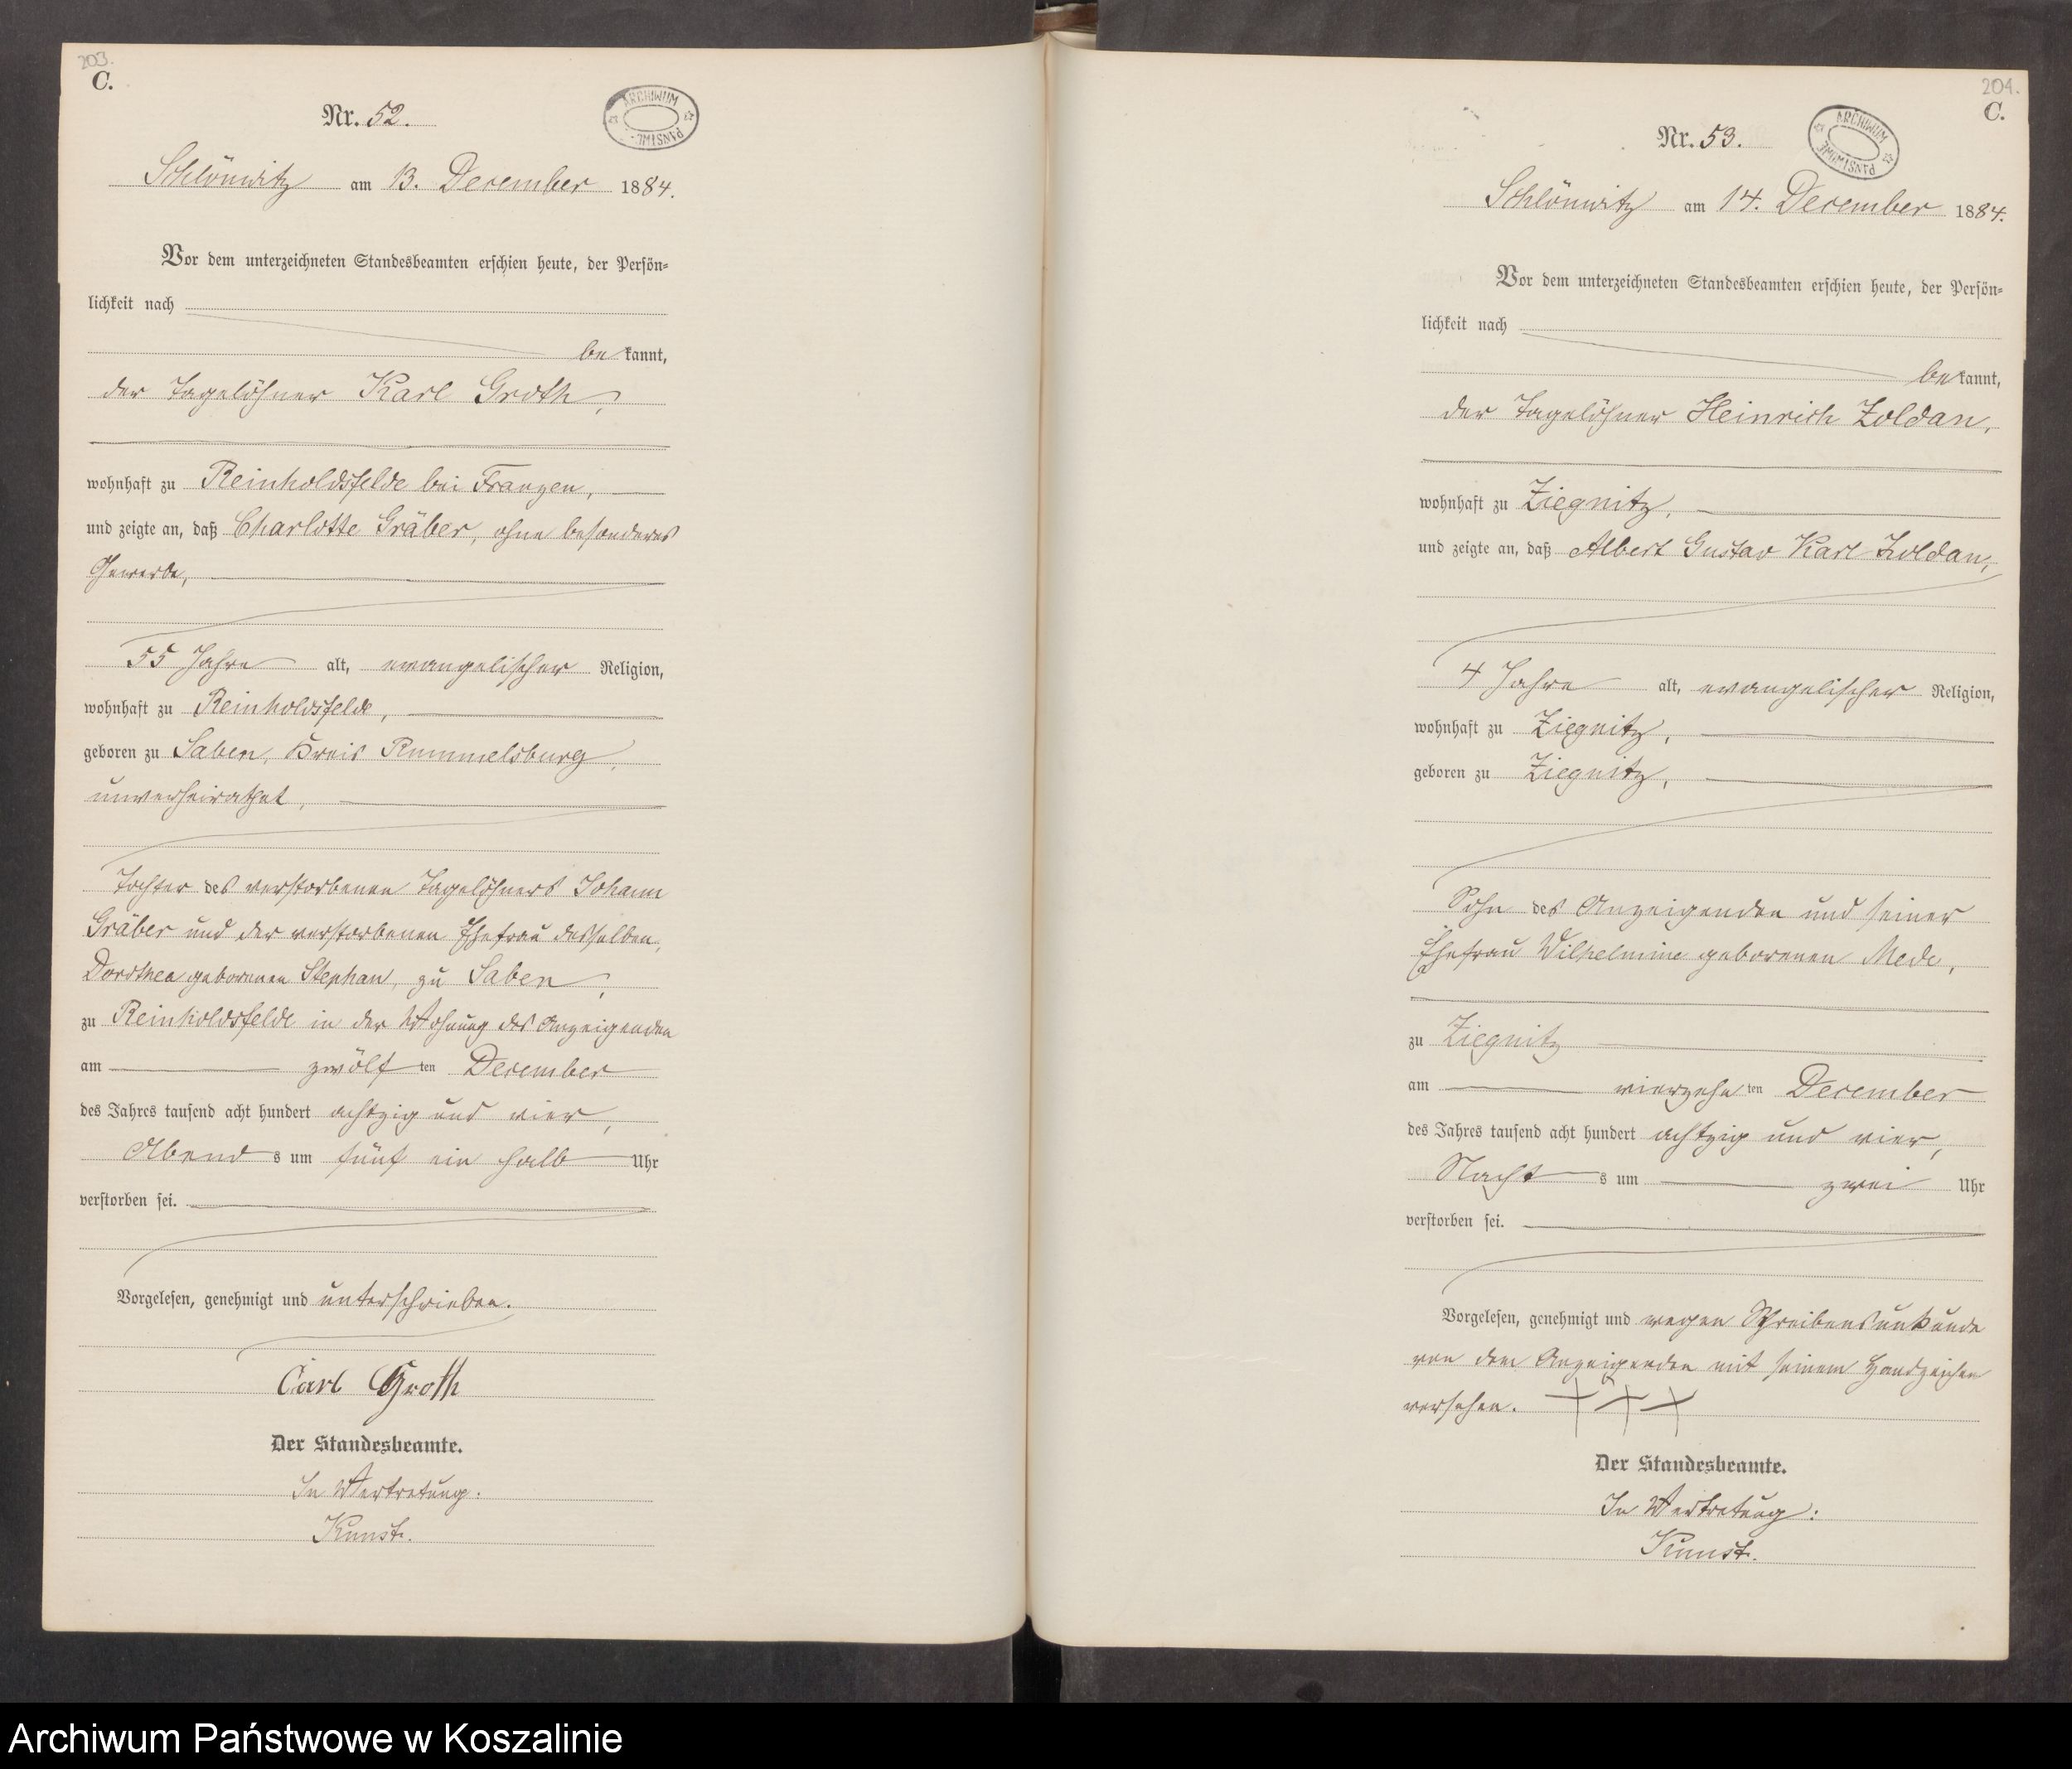 203.
C.
Nr. 52.
ARCHIWUM PAŃSTWOWE
Schlönwitz am 13. December 1884.
Vor dem unterzeichneten Standesbeamten erschien heute, der Persön-
lichkeit nach
bekannt,
der Tagelöhner Karl Groth,
wohnhaft zu Reinholdsfelde bei Franzen,
und zeigte an, daß Charlotte Gräber, ohne besonderes
Gewerbe,
55 Jahre alt, evangelischer Religion,
wohnhaft zu Reinholdsfelde,
geboren zu Saben, Kreis Rummelsburg,
unverheirathet,
Tochter des verstorbenen Tagelöhners Johann
Gräber und der verstorbenen Ehefrau desselben,
Dorothea geborenen Stephan, zu Saben,
zu Reinholdsfelde in der Wohnung des Anzeigenden
am zwölf ten December
des Jahres tausend acht hundert achtzig und vier,
Abend s um fünf ein halb Uhr
verstorben sei.
Vorgelesen, genehmigt und unterschrieben.
Carl Groth
Der Standesbeamte.
In Vertretung.
Kunst.
204.
C.
Nr. 53.
ARCHIWUM PAŃSTWOWE
Schlönwitz am 14. December 1884.
Vor dem unterzeichneten Standesbeamten erschien heute, der Persön-
lichkeit nach
bekannt,
der Tagelöhner Heinrich Zoldan,
wohnhaft zu Ziegnitz,
und zeigte an, daß Albert Gustav Karl Zoldan,
4 Jahre alt, evangelischer Religion,
wohnhaft zu Ziegnitz,
geboren zu Ziegnitz,
Sohn des Anzeigenden und seiner
Ehefrau Wilhelmine geborenen Mede,
zu Ziegnitz
am vierzehn ten December
des Jahres tausend acht hundert achtzig und vier,
Nacht s um zwei Uhr
verstorben sei.
Vorgelesen, genehmigt und wegen Schreibensunkunde
von dem Anzeigenden mit seinem Handzeichen
versehen. + + +
Der Standesbeamte.
In Vertretung:
Kunst.
Archiwum Państwowe w Koszalinie